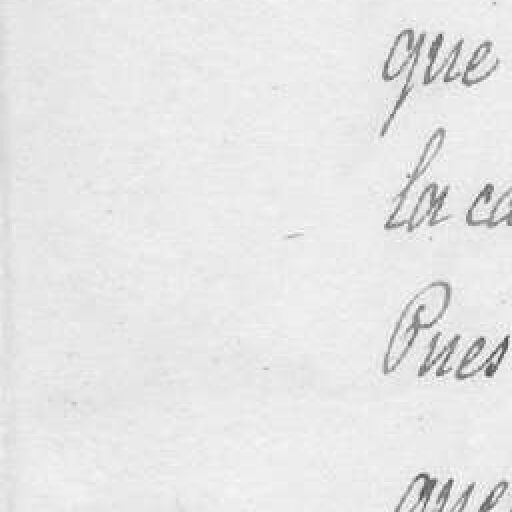 que
la ca
Pues
que